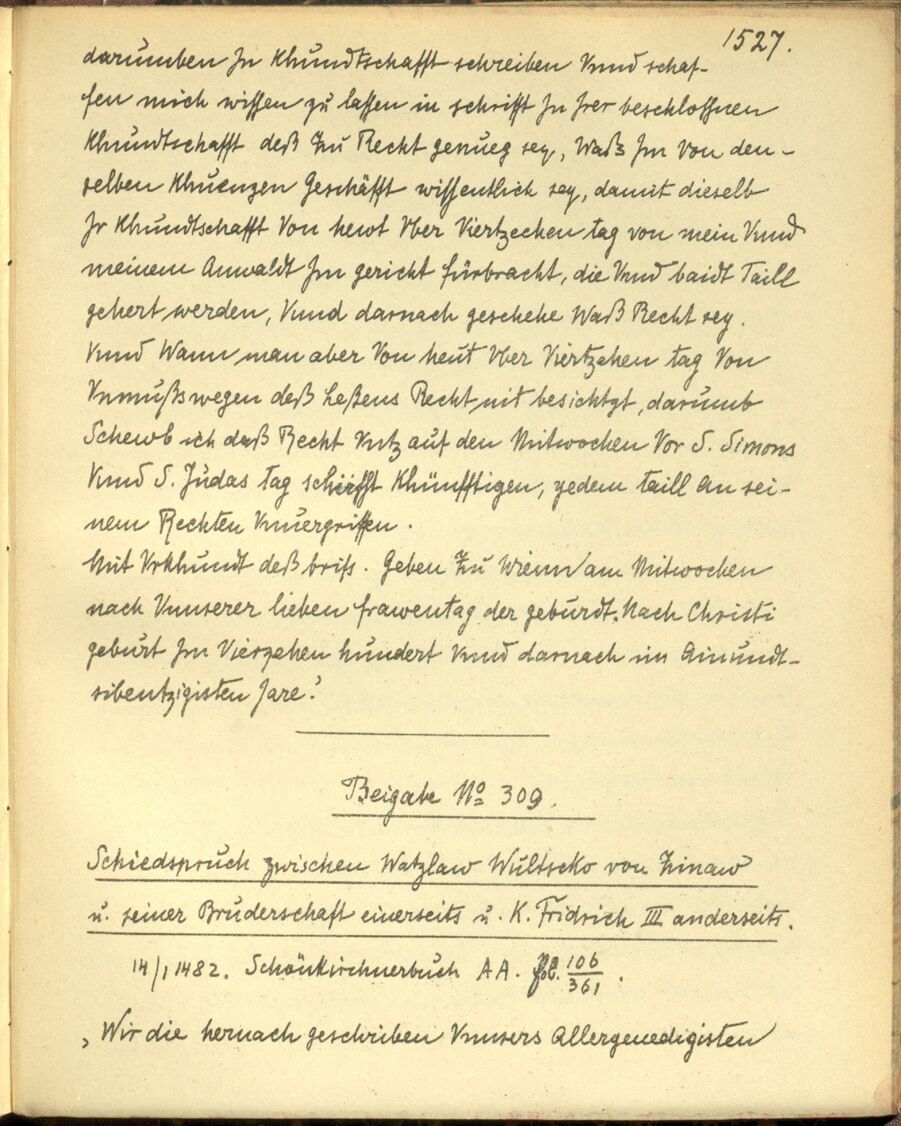 1527.
darumben Jn Khundtschafft schreiben Vnnd schaf-
fen mich wissen zu lassen in schrifft Jn Jrer beschlossnen
Khundtschafft deß Zu Recht genueg sey, Waß Jm Von den-
selben Khuenzen Geschäfft wissentlich sey, damit dieselb
Jr Khundtschafft Von hewt Vber Viertzechen tag von mein Vnnd
meinem Anwaldt Jm gericht fürbracht, die Vnnd baidt Taill
gehert werden, Vnnd darnach geschehe Waß Recht sey.
Vnnd Wann man aber Von heut Vber Viertzehen tag Von
Vnmußs wegen deß Leßens Recht nit besichtgt, darumb
Schewb ich daß Recht Vntz auf den Mitwochen Vor S. Simons
Vnnd S. Judas tag schierst Khünfftigen, yedem taill an sei-
nem Rechten Vnuergriffen.
Mit Vrkhundt deß brifs. Geben Zu Wienn am Mitwochen
nach Vnnserer lieben frawentag der geburdt. Nach Christi
geburt Jm Vierzehen hundert Vnnd darnach im Ainundt-
sibentzigisten Jare.'
Beigabe No 309.
Schiedspruch zwischen Watzlaw Wultscko von Zinaw
u. seiner Bruderschaft einerseits u. K. Fridrich III anderseits.
14/1 1482. Schönkirchnerbuch AA. fol. 106/361.
, Wir die hernach geschriben Vnnsers Allergenedigisten